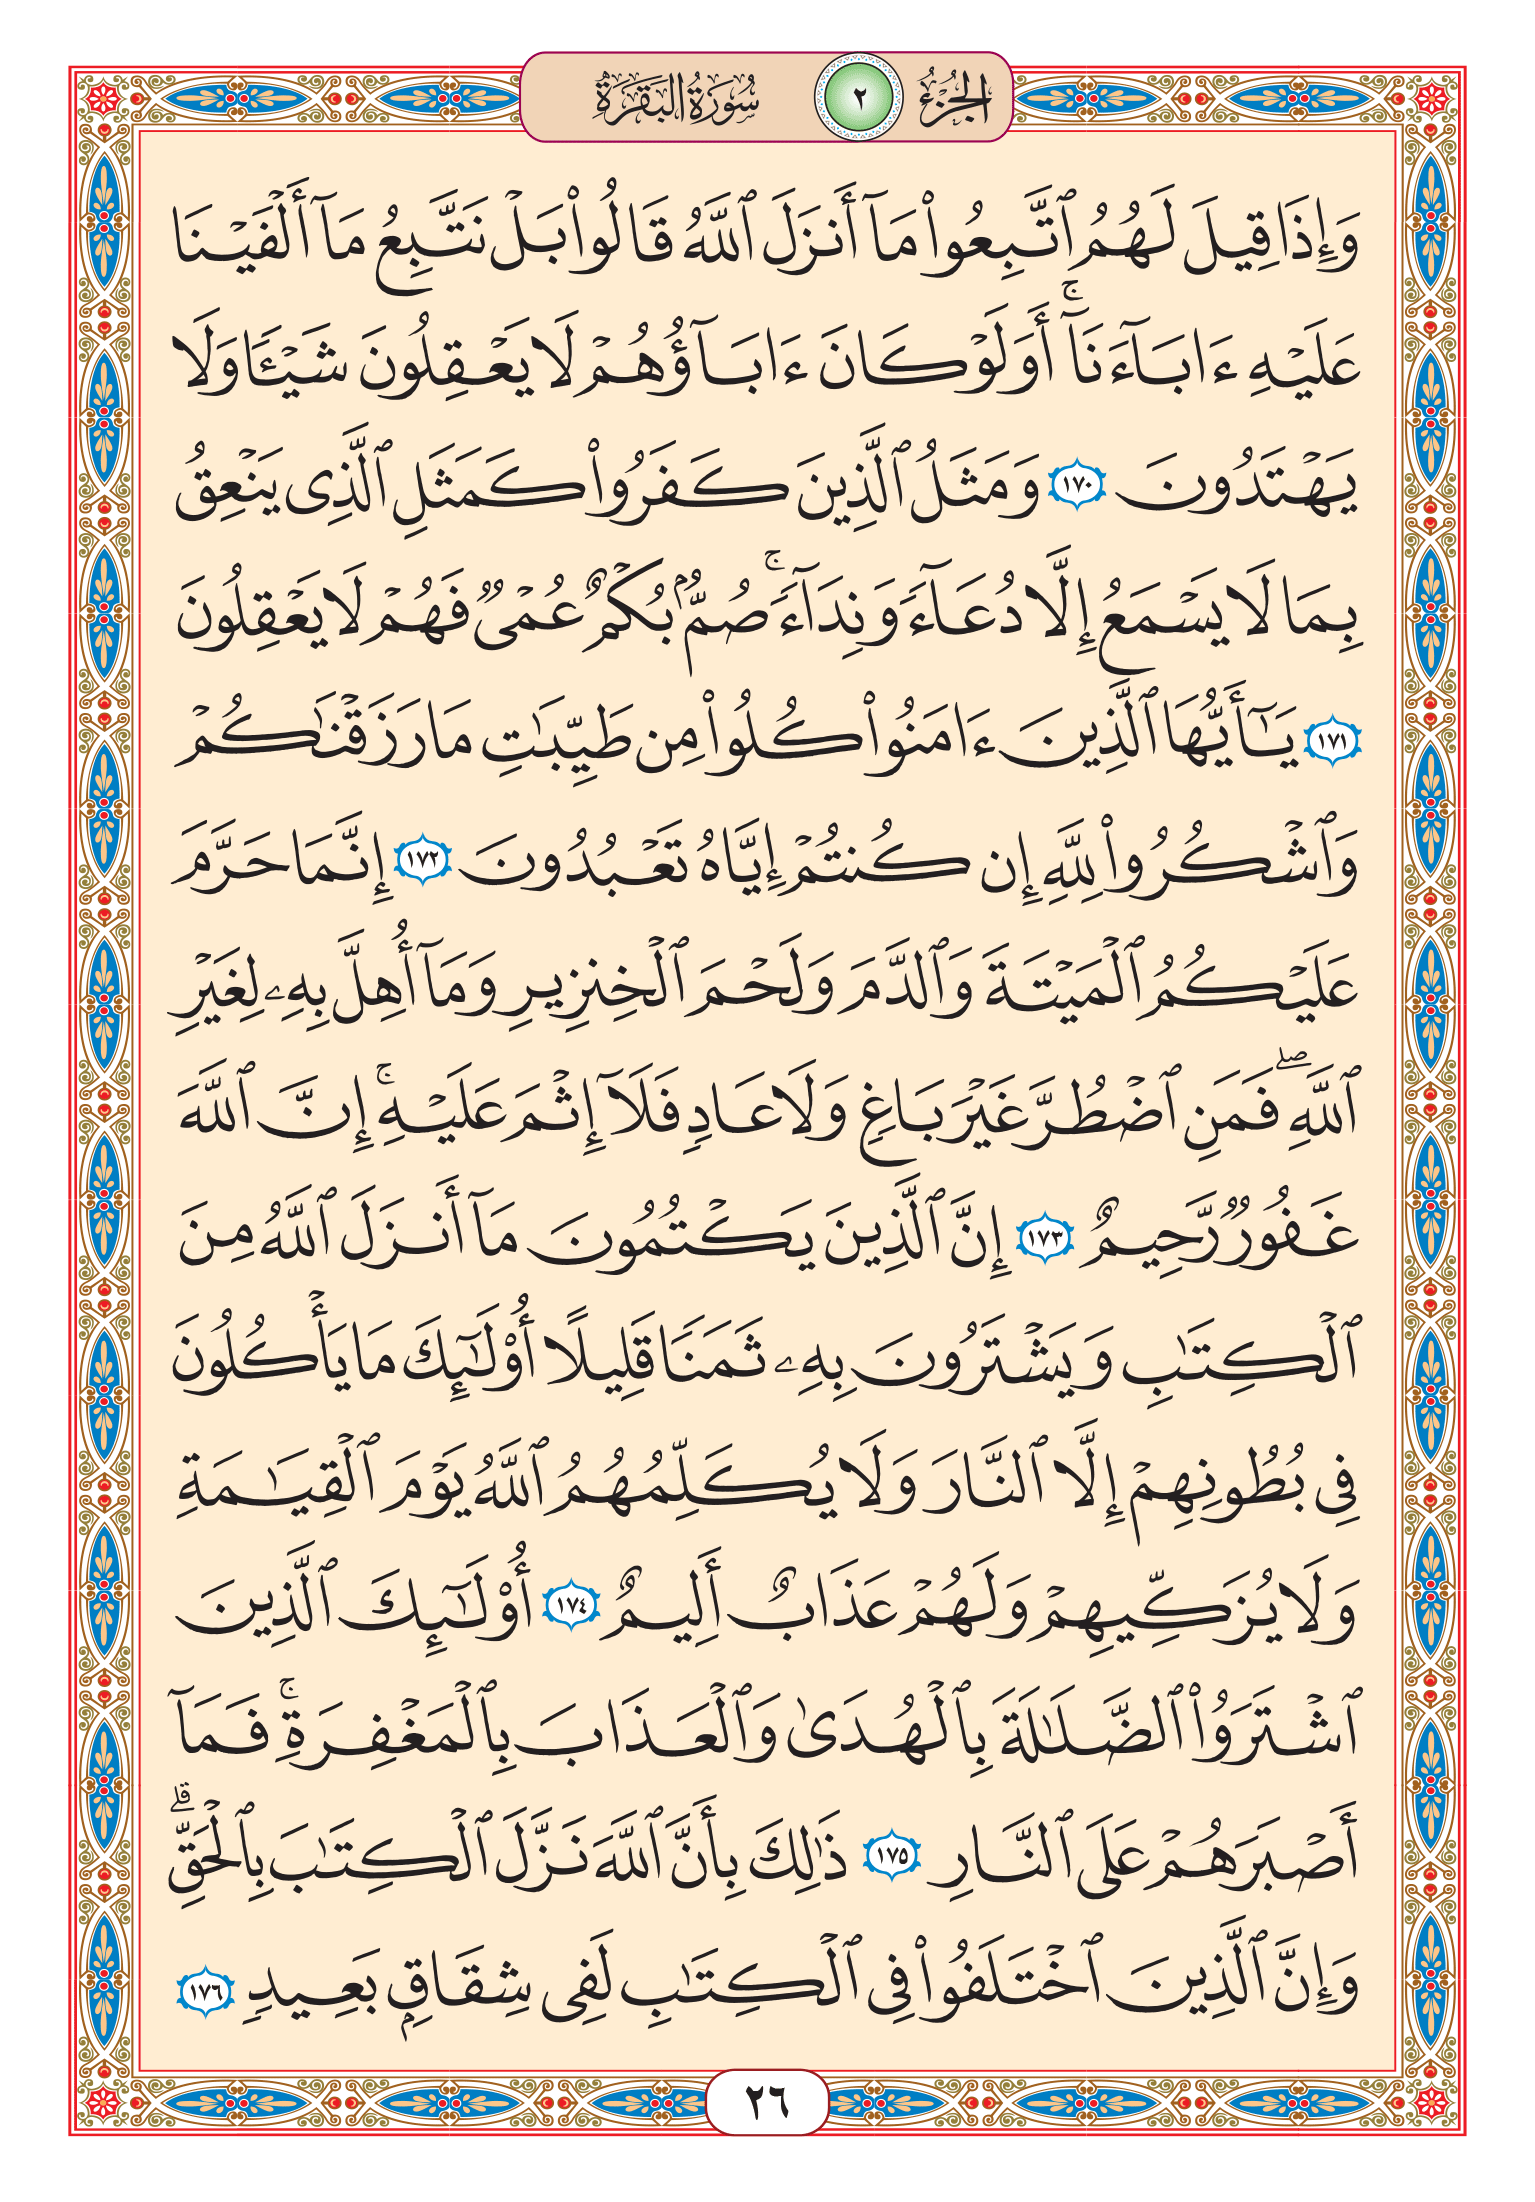 الجزء ٢ سورة البقرة
وَإِذَا قِيلَ لَهُمُ ٱتَّبِعُوا۟ مَآ أَنزَلَ ٱللَّهُ قَالُوا۟ بَلْ نَتَّبِعُ مَآ أَلْفَيْنَا
عَلَيْهِ ءَابَآءَنَآ ۚ أَوَلَوْ كَانَ ءَابَآؤُهُمْ لَا يَعْقِلُونَ شَيْـًٔا وَلَا
يَهْتَدُونَ ١٧٠ وَمَثَلُ ٱلَّذِينَ كَفَرُوا۟ كَمَثَلِ ٱلَّذِى يَنْعِقُ
بِمَا لَا يَسْمَعُ إِلَّا دُعَآءً وَنِدَآءً ۚ صُمٌّۢ بُكْمٌ عُمْىٌ فَهُمْ لَا يَعْقِلُونَ
١٧١ يَـٰٓأَيُّهَا ٱلَّذِينَ ءَامَنُوا۟ كُلُوا۟ مِن طَيِّبَـٰتِ مَا رَزَقْنَـٰكُمْ
وَٱشْكُرُوا۟ لِلَّهِ إِن كُنتُمْ إِيَّاهُ تَعْبُدُونَ ١٧٢ إِنَّمَا حَرَّمَ
عَلَيْكُمُ ٱلْمَيْتَةَ وَٱلدَّمَ وَلَحْمَ ٱلْخِنزِيرِ وَمَآ أُهِلَّ بِهِۦ لِغَيْرِ
ٱللَّهِ ۖ فَمَنِ ٱضْطُرَّ غَيْرَ بَاغٍ وَلَا عَادٍ فَلَآ إِثْمَ عَلَيْهِ ۚ إِنَّ ٱللَّهَ
غَفُورٌ رَّحِيمٌ ١٧٣ إِنَّ ٱلَّذِينَ يَكْتُمُونَ مَآ أَنزَلَ ٱللَّهُ مِنَ
ٱلْكِتَـٰبِ وَيَشْتَرُونَ بِهِۦ ثَمَنًا قَلِيلًا أُو۟لَـٰٓئِكَ مَا يَأْكُلُونَ
فِى بُطُونِهِمْ إِلَّا ٱلنَّارَ وَلَا يُكَلِّمُهُمُ ٱللَّهُ يَوْمَ ٱلْقِيَـٰمَةِ
وَلَا يُزَكِّيهِمْ وَلَهُمْ عَذَابٌ أَلِيمٌ ١٧٤ أُو۟لَـٰٓئِكَ ٱلَّذِينَ
ٱشْتَرَوُا۟ ٱلضَّلَـٰلَةَ بِٱلْهُدَىٰ وَٱلْعَذَابَ بِٱلْمَغْفِرَةِ ۚ فَمَآ
أَصْبَرَهُمْ عَلَى ٱلنَّارِ ١٧٥ ذَٰلِكَ بِأَنَّ ٱللَّهَ نَزَّلَ ٱلْكِتَـٰبَ بِٱلْحَقِّ ۗ
وَإِنَّ ٱلَّذِينَ ٱخْتَلَفُوا۟ فِى ٱلْكِتَـٰبِ لَفِى شِقَاقٍۭ بَعِيدٍ ١٧٦
٢٦